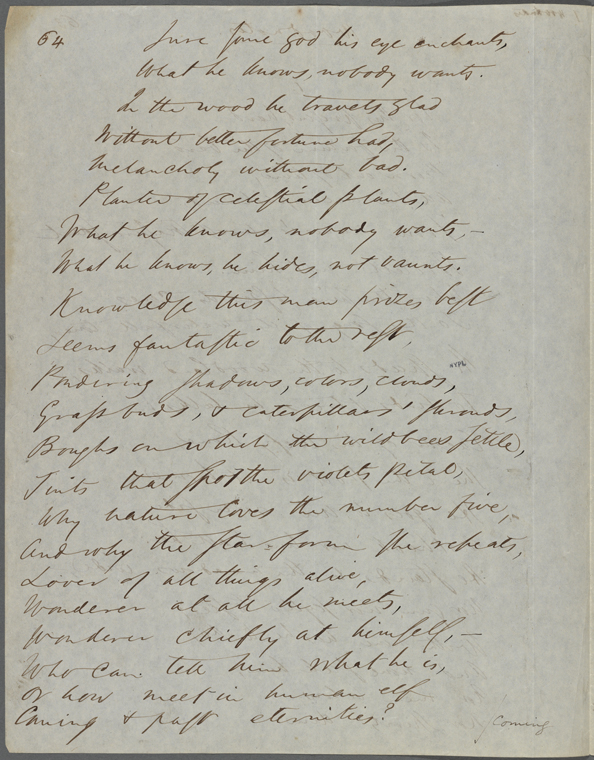 64
Sure some god his eye enchants,
What he knows, nobody wants.
In the wood he travels glad
Without better fortune had,
Melancholy without bad.
Planter of celestial plants,
What he knows, nobody wants,—
What he knows, he hides, not vaunts.
Knowledge this man prizes best
Seems fantastic to the rest,
Pondering shadows, colors, clouds,
Grass buds, & caterpillars' shrouds,
Boughs on which the wild bees settle,
Tints that spot the violets petal,
Why nature loves the number five,
And why the star-form she repeats,
Lover of all things alive,
Wonderer at all he meets,
Wonderer chiefly at himself,—
Who can tell him what he is,
Or how meet in human elf
Coming & past eternities?
Coming
NYPL